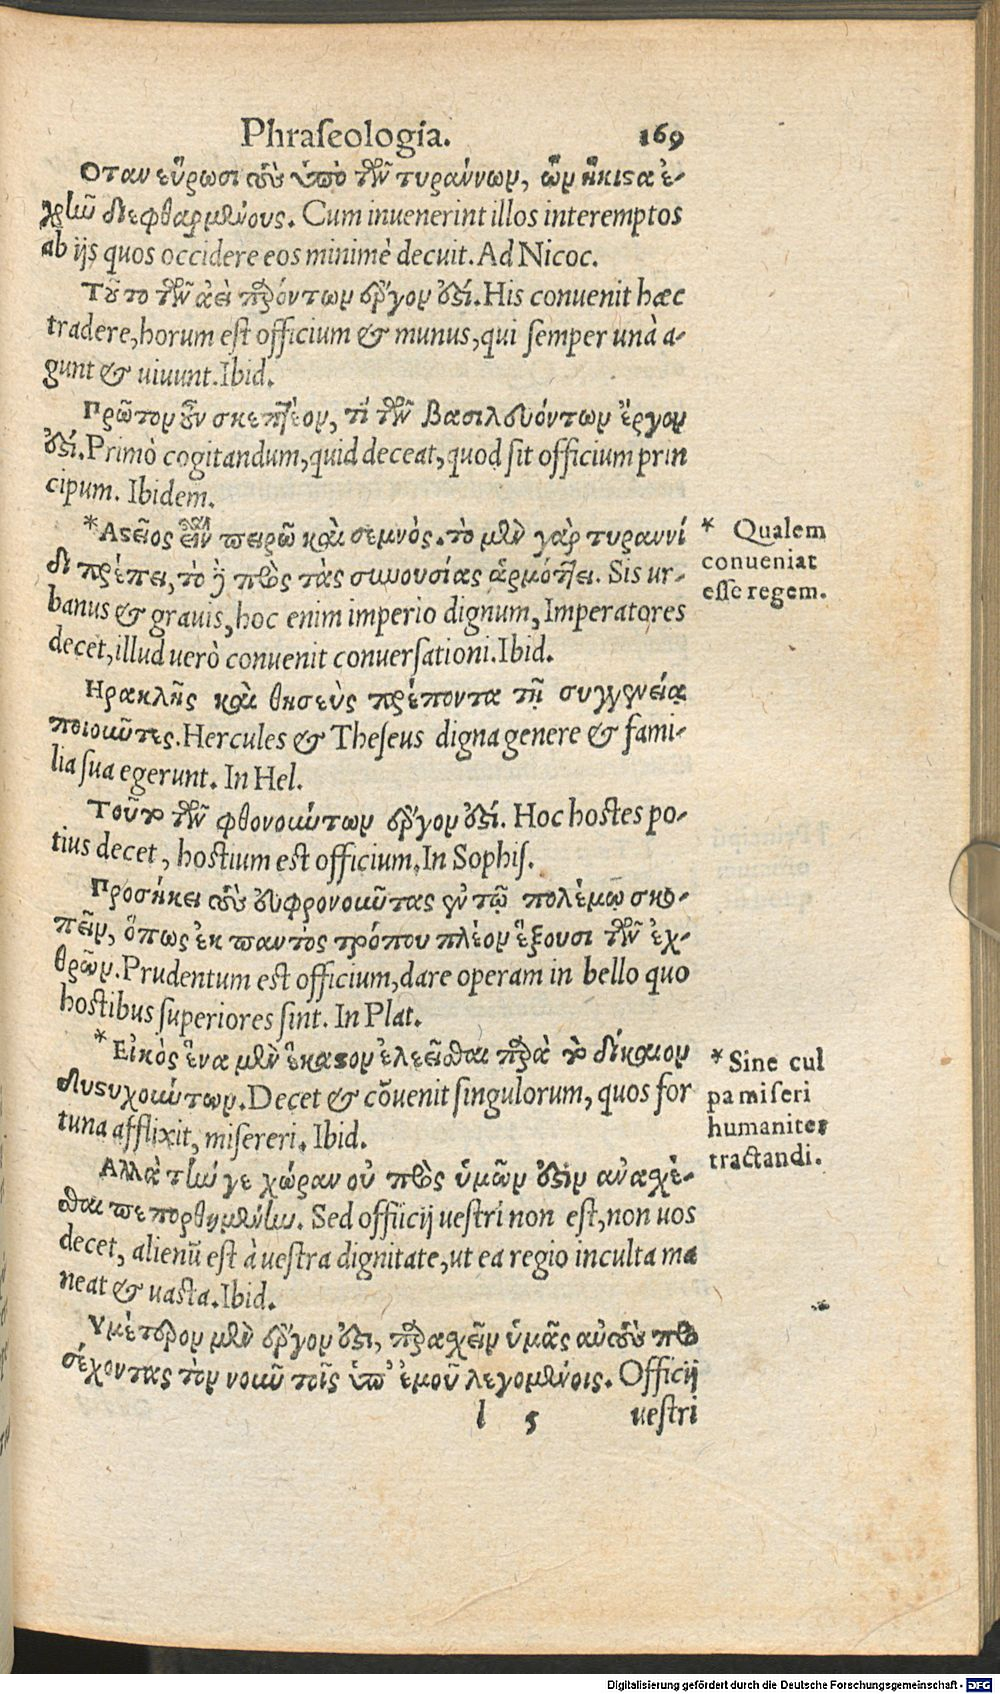 Phraſeologia. 169
Οταν εὕρωσι τοὺς ὑπὸ τῶν τυράννων, ὧν ἥκιστα ἐ-
χρῆν διεφθαρμένους. Cum inuenerint illos interemptos
ab ijs quos occidere eos minimè decuit. Ad Nicoc.
Τοῦτο τῶν ἀεὶ παρόντων ἔργον ἐστί. His conuenit hæc
tradere, horum est officium & munus, qui ſemper unà a-
gunt & uiuunt. Ibid.
Πρῶτον οὖν σκεπτέον, τί τῶν βασιλευόντων ἔργον
ἐστί. Primò cogitandum, quid deceat, quod ſit officium prin
cipum. Ibidem.
*Αστεῖος εἶναι πειρῶ καὶ σεμνός. τὸ μὲν γὰρ τυραννί
δι πρέπει, τὸ δὲ πρὸς τὰς συνουσίας ἁρμόττει. Sis ur-
banus & grauis, hoc enim imperio dignum, Imperatores
decet, illud uerò conuenit conuerſationi. Ibid.
* Qualem
conueniat
eſſe regem.
Ηρακλῆς καὶ θησεὺς πρέποντα τῇ συγγενείᾳ
ποιοῦντες. Hercules & Theſeus digna genere & fami-
lia ſua egerunt. In Hel.
Τοῦτο τῶν φθονούντων ἔργον ἐστί. Hoc hostes po-
tius decet, hostium est officium. In Sophiſ.
Προσήκει τοὺς εὐφρονοῦντας ἐν τῷ πολέμῳ σκο-
πεῖν, ὅπως ἐκ παντὸς τρόπου πλέον ἕξουσι τῶν ἐχ-
θρῶν. Prudentum est officium, dare operam in bello quo
hostibus ſuperiores ſint. In Plat.
*Εἰκὸς ἕνα μὲν ἕκαστον ἐλεεῖσθαι παρὰ τὸ δίκαιον
δυστυχούντων. Decet & cōuenit ſingulorum, quos for
tuna afflixit, miſereri. Ibid.
*Sine cul
pa miſeri
humaniter
tractandi.
Αλλὰ τὴν γε χώραν οὐ πρὸς ὑμῶν ἐστιν ἀνασχέ-
σθαι πεπορθημένην. Sed offiicij ueſtri non est, non uos
decet, alienū est à ueſtra dignitate, ut ea regio inculta ma
neat & uasta. Ibid.
Υμέτερον μὲν ἔργον ἐστι, παρασχεῖν ὑμᾶς αὐτοὺς προ
σέχοντας τὸν νοῦν τοῖς ὑπ' ἐμοῦ λεγομένοις. Officij
l 5 ueſtri
Digitalisierung gefördert durch die Deutsche Forschungsgemeinschaft - DFG